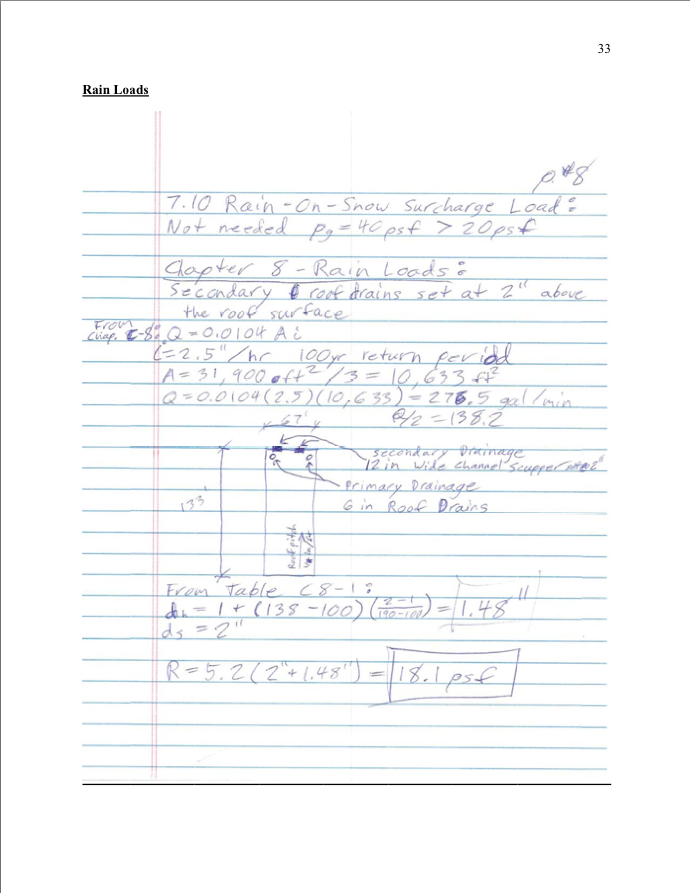 33
Rain Loads
p.#8
7.10 Rain-On-Snow Surcharge Load:
Not needed pg = 40psf > 20psf
Chapter 8 - Rain Loads:
Secondary roof drains set at 2" above
the roof surface
From
Chap. C-8: Q = 0.0104 A i
i = 2.5"/hr 100yr return period
A = 31,900 ft² / 3 = 10,633 ft²
Q = 0.0104(2.5)(10,633) = 276.5 gal/min
Q/2 = 138.2
67'
Secondary Drainage
12 in Wide Channel Scupper
Primary Drainage
6 in Roof Drains
133'
Roof pitch
1/4 in/ft
From Table C8-1:
dh = 1 + (138-100)(2-1/190-100) = 1.48"
ds = 2"
R = 5.2(2"+1.48") = 18.1 psf